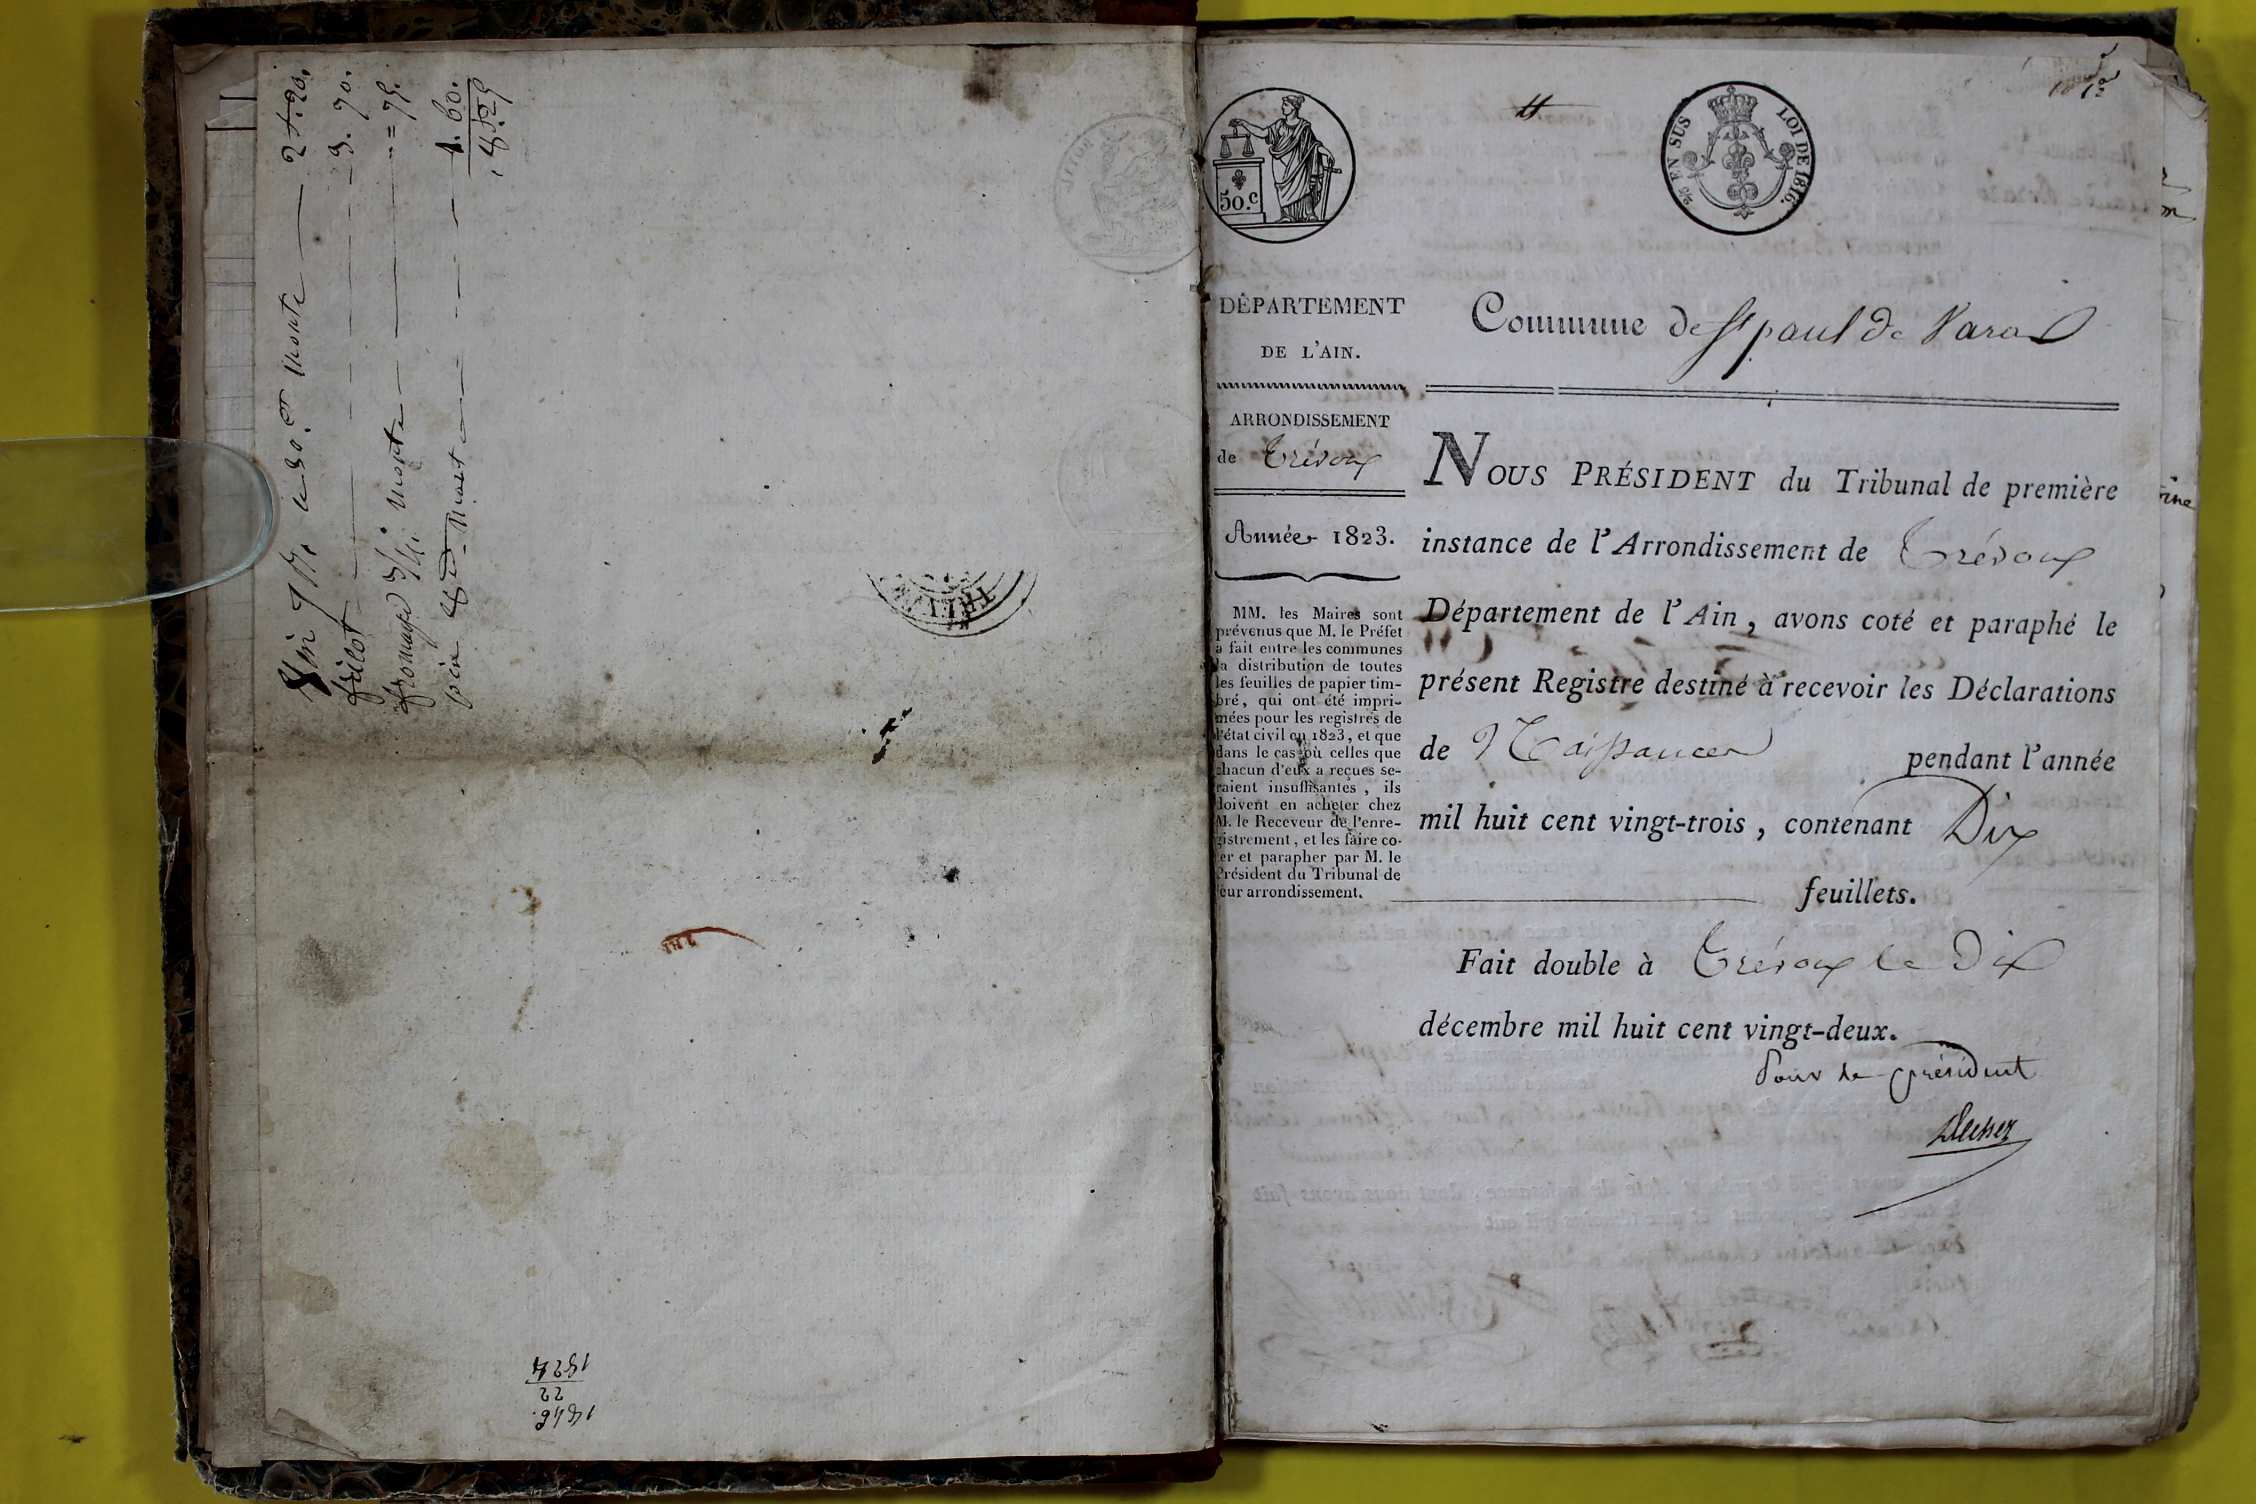 monte — 2
frilot 3. 70.
fromage monte = 75.
pain 1. 60.
1846.
22
1824
50.c
25 EN SUS LOI DE 1816.
DÉPARTEMENT
DE L'AIN.
ARRONDISSEMENT
de Trévoux
Année 1823.
MM. les Maires sont
prévenus que M. le Préfet
a fait entre les communes
la distribution de toutes
les feuilles de papier tim-
bré, qui ont été impri-
mées pour les registres de
l'état civil en 1823, et que
dans le cas où celles que
chacun d'eux a reçues se-
raient insuffisantes, ils
doivent en acheter chez
M. le Receveur de l'enre-
gistrement, et les faire co-
ter et parapher par M. le
Président du Tribunal de
leur arrondissement.
Commune de St paul de Varax
NOUS PRÉSIDENT du Tribunal de première
instance de l'Arrondissement de Trévoux
Département de l'Ain, avons coté et paraphé le
présent Registre destiné à recevoir les Déclarations
de Naissances pendant l'année
mil huit cent vingt-trois, contenant Dix
feuillets.
Fait double à Trévoux le Dix
décembre mil huit cent vingt-deux.
Pour le président